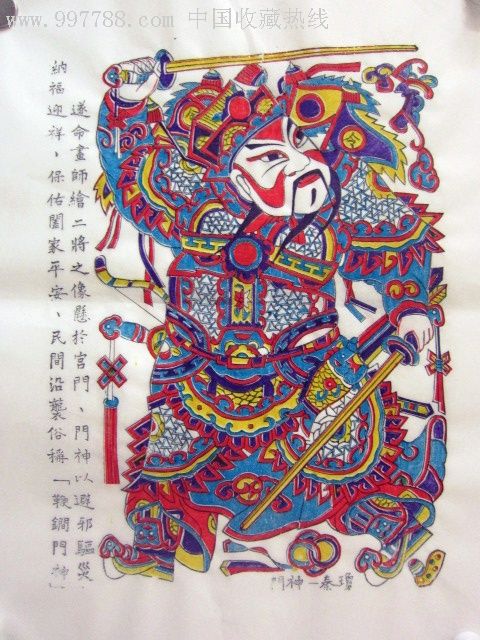 www.997788.com 中国收藏热线
遂命畫師繪二將之像懸於宮門、門神以避邪驅災
納福迎祥，保佑闔家平安、民間沿襲俗稱「鞭鐧門神」
門神—秦瓊